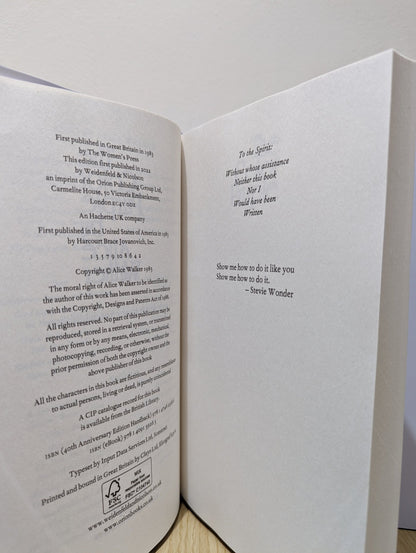 First published in Great Britain in 1983
by The Women's Press
This edition first published in 2022
by Weidenfeld & Nicolson
an imprint of the Orion Publishing Group Ltd,
Carmelite House, 50 Victoria Embankment,
London EC4Y 0DZ
An Hachette UK company
First published in the United States of America in 1983
by Harcourt Brace Jovanovich, Inc.
1 3 5 7 9 10 8 6 4 2
Copyright © Alice Walker 1983
The moral right of Alice Walker to be identified as
the author of this work has been asserted in accordance
with the Copyright, Designs and Patents Act of 1988.
All rights reserved. No part of this publication may be
reproduced, stored in a retrieval system, or transmitted
in any form or by any means, electronic, mechanical,
photocopying, recording, or otherwise, without the
prior permission of both the copyright owner and the
above publisher of this book.
All the characters in this book are fictitious, and any resemblance
to actual persons, living or dead, is purely coincidental.
A CIP catalogue record for this book
is available from the British Library.
ISBN (40th Anniversary Edition Hardback) 978 1
ISBN (eBook) 978 1 4091
Typeset by Input Data Services Ltd, Somerset
Printed and bound in Great Britain by Clays Ltd, Elcograf S.p.A.
FSC
MIX
www.weidenfeldandnicolson.co.uk
www.orionbooks.co.uk
To the Spirit:
Without whose assistance
Neither this book
Nor I
Would have been
Written
Show me how to do it like you
Show me how to do it.
– Stevie Wonder